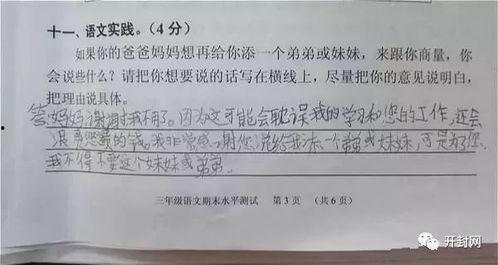 十一、语文实践。（4分）
如果你的爸爸妈妈想再给你添一个弟弟或妹妹，来跟你商量，你
会说些什么？请把你想要说的话写在横线上，尽量把你的意见说明白，
把理由说具体。
答:妈妈,谢谢,我不用了。因为这可能会耽误我的学习和您的工作,还会
浪费您的钱。我非常感谢您说给我添一个弟弟或妹妹,可是为了您,
我不得不要这个妹妹或弟弟。
三年级语文期末水平测试 第3页 （共6页）
开封网